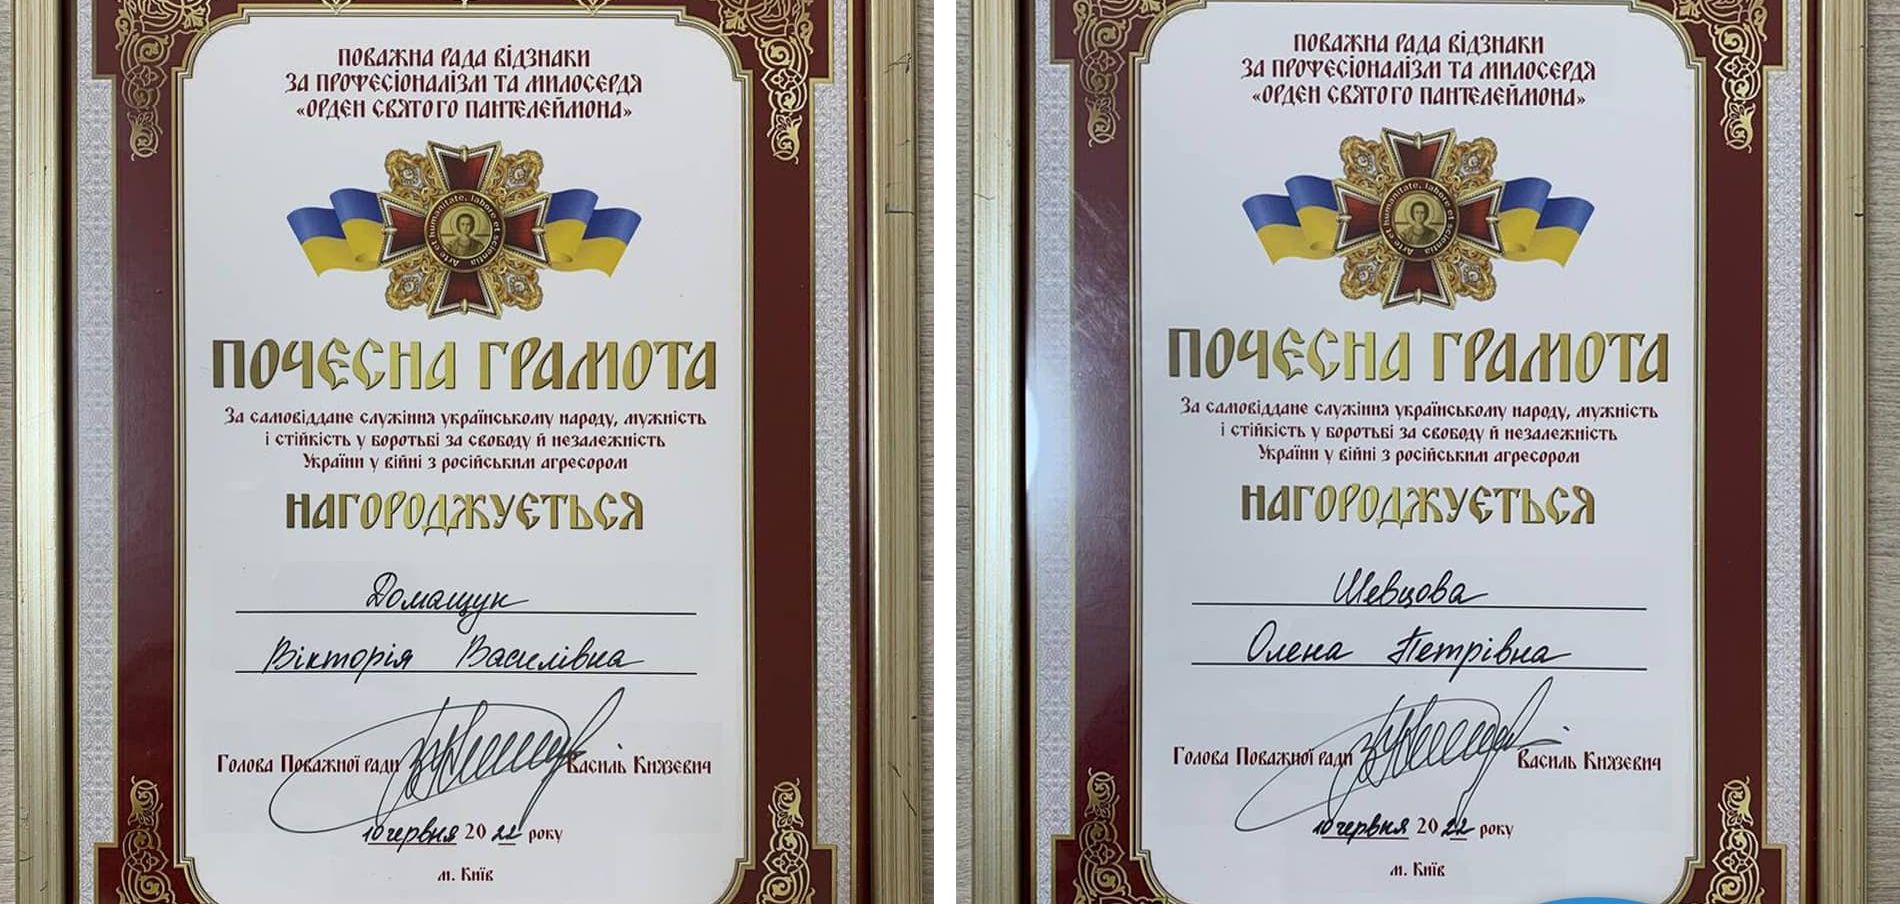 ПОВАЖНА РАДА ВІДЗНАКИ
ЗА ПРОФЕСІОНАЛІЗМ ТА МИЛОСЕРДЯ
«ОРДЕН СВЯТОГО ПАНТЕЛЕЙМОНА»
Arte et humanitate, labore et scientia
ПОЧЕСНА ГРАМОТА
За самовіддане служіння українському народу, мужність
і стійкість у боротьбі за свободу й незалежність
України у війні з російським агресором
НАГОРОДЖУЄТЬСЯ
Домащук
Вікторія Василівна
Голова Поважної ради Василь Князевич
10 червня 2022 року
м. Київ
ПОВАЖНА РАДА ВІДЗНАКИ
ЗА ПРОФЕСІОНАЛІЗМ ТА МИЛОСЕРДЯ
«ОРДЕН СВЯТОГО ПАНТЕЛЕЙМОНА»
Arte et humanitate, labore et scientia
ПОЧЕСНА ГРАМОТА
За самовіддане служіння українському народу, мужність
і стійкість у боротьбі за свободу й незалежність
України у війні з російським агресором
НАГОРОДЖУЄТЬСЯ
Шевцова
Олена Петрівна
Голова Поважної ради Василь Князевич
10 червня 2022 року
м. Київ